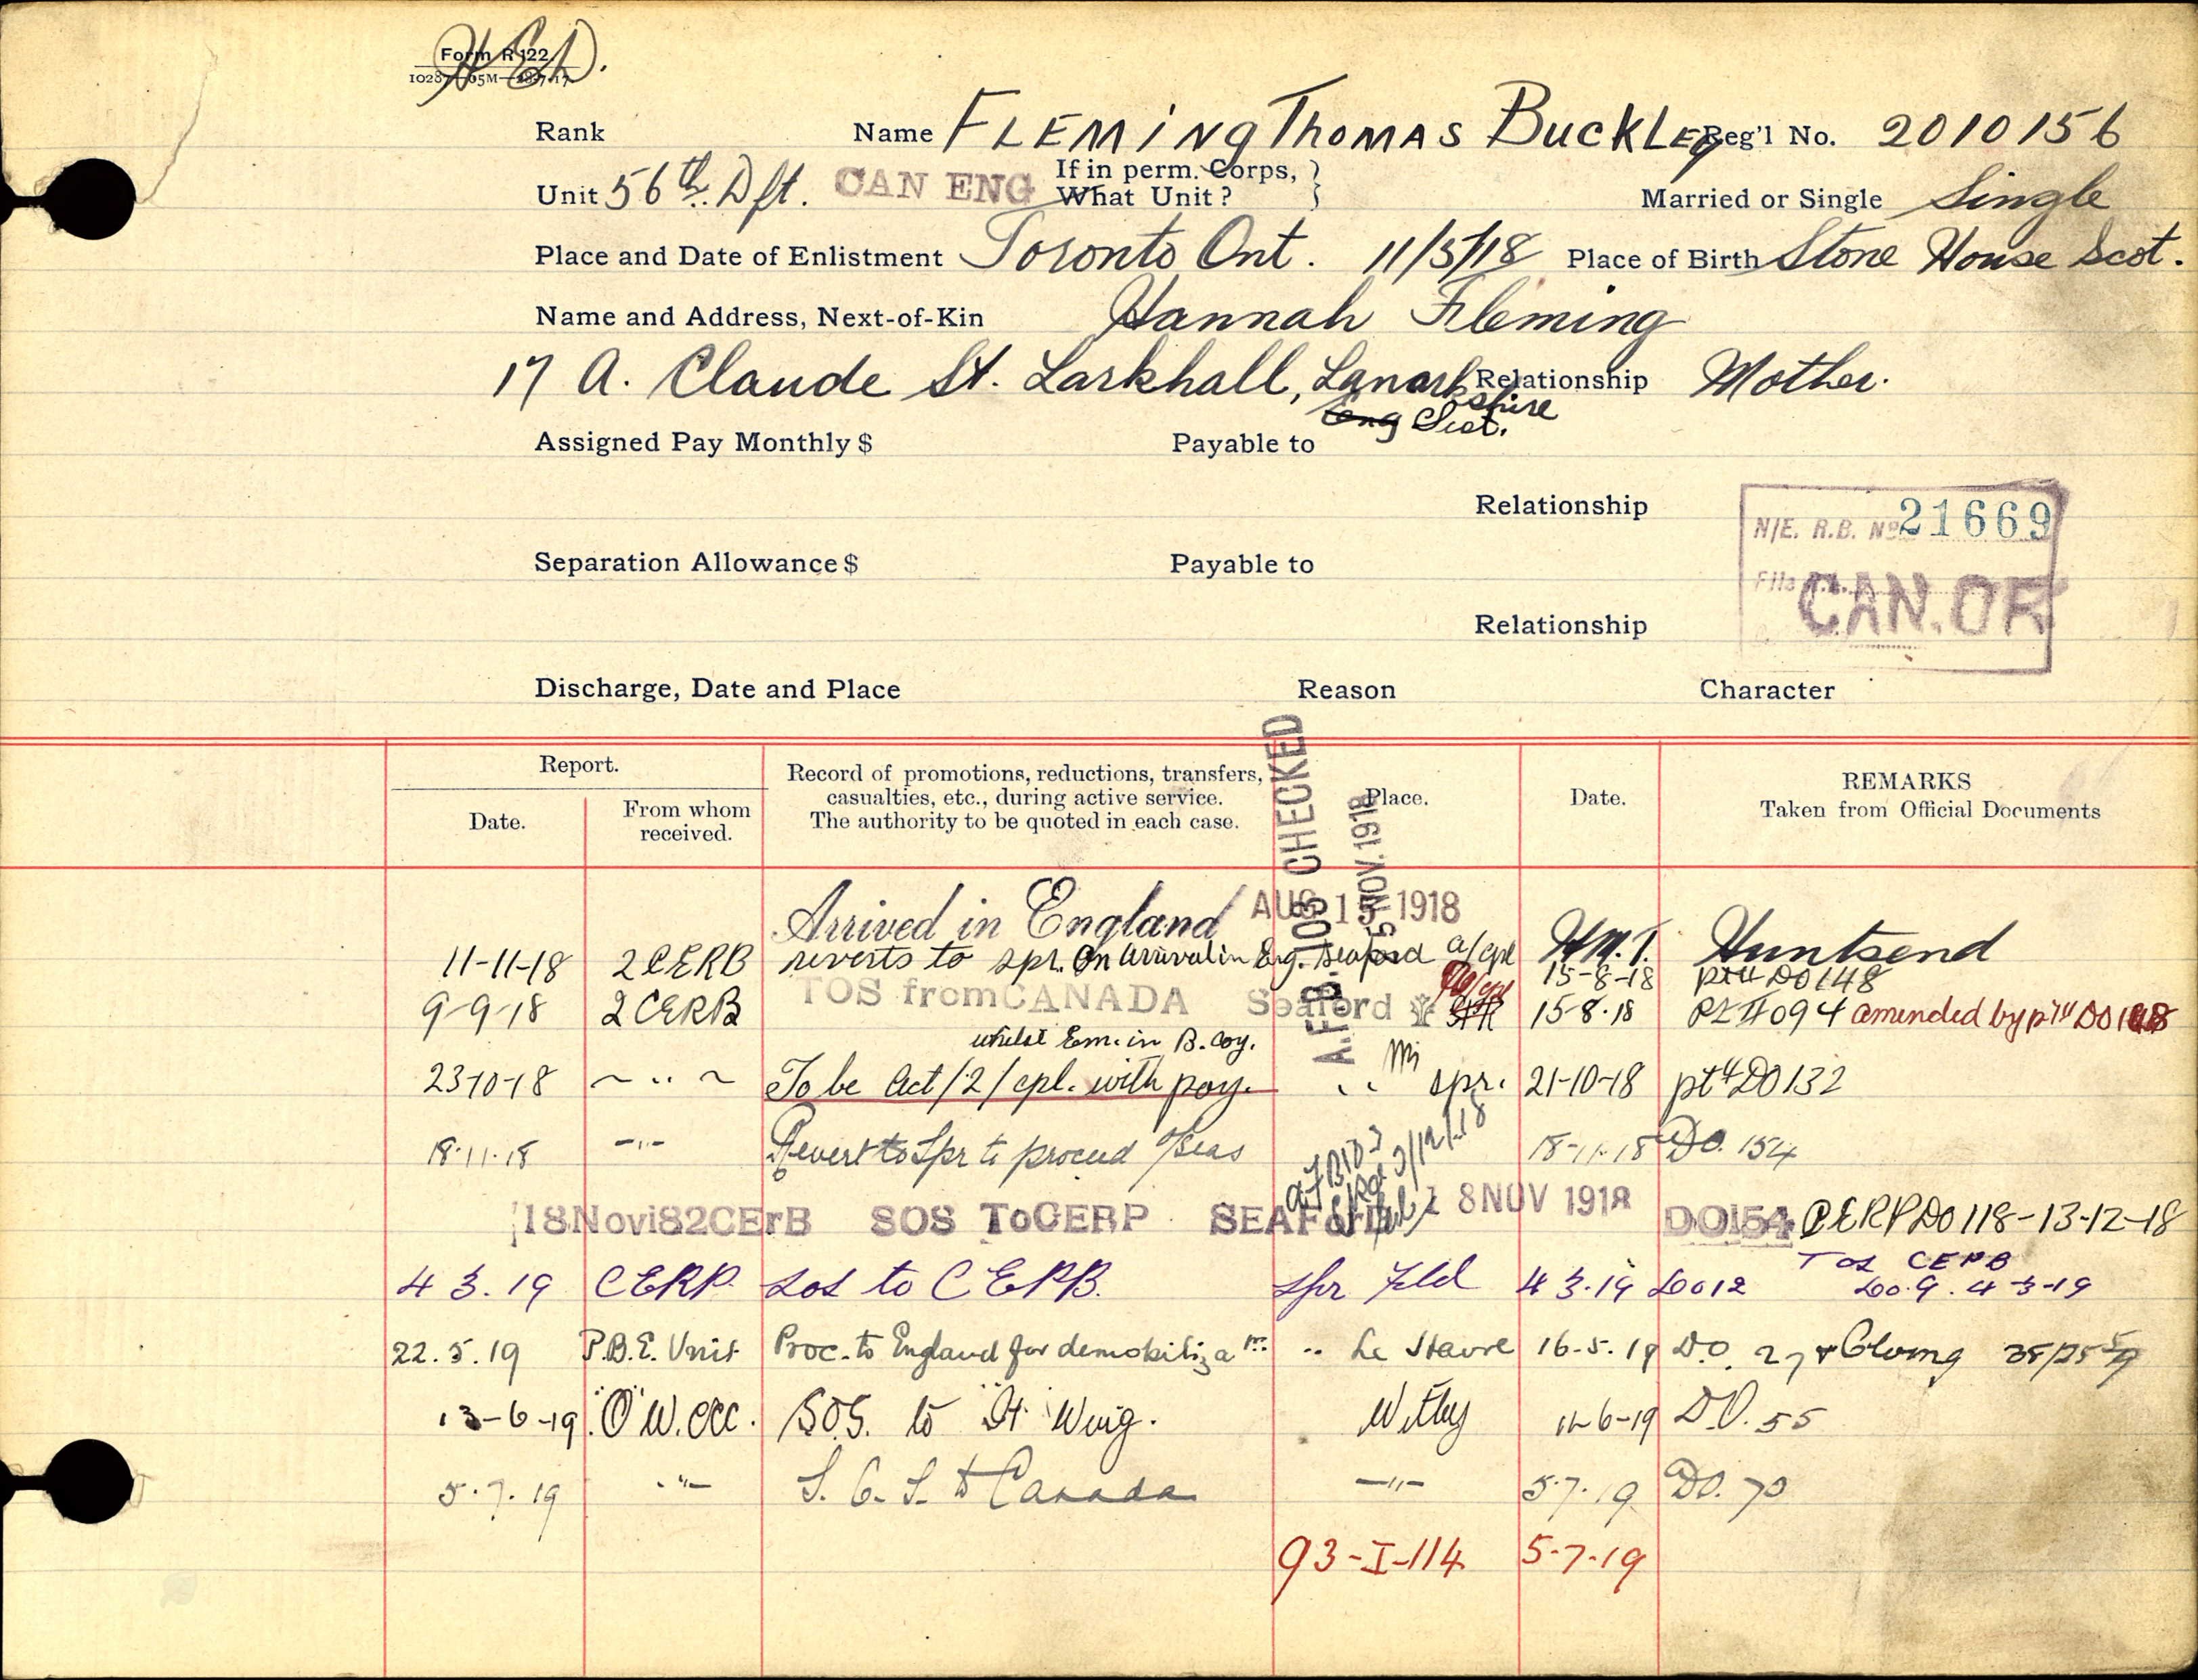 Form R 122
H.E.D.
Rank Name FLEMING THOMAS BUCKLEY Reg'l No. 2010156
Unit 56th. Dft. CAN ENG If in perm. Corps, What Unit? Married or Single Single
Place and Date of Enlistment Toronto Ont. 11/5/18 Place of Birth Stone House Scot.
Name and Address, Next-of-Kin Hannah Fleming
17 A. Claude St. Larkhall, Lanarkshire Relationship Mother.
Eng Scot.
Assigned Pay Monthly $ Payable to
Relationship
N/E. R.B. No 21669
Separation Allowance $ Payable to
File
CAN. OR
Relationship
Discharge, Date and Place Reason Character
Report. Date. From whom received. Record of promotions, reductions, transfers, casualties, etc., during active service. The authority to be quoted in each case. Place. Date. REMARKS Taken from Official Documents
A.F.B. 103 CHECKED
5 NOV. 1918
Arrived in England AUG 15 1918 H.M.T. Huntsend
11-11-18 2CERB reverts to spr. On arrival in Eng. Seaford a/cpl 15-8-18 pt II DO148
9-9-18 2CERB TOS from CANADA Seaford 15-8-18 Pt II 094 amended by pt II DO148
whilst Em. in B. Coy.
23-10-18 ~ " ~ To be Act/2/cpl. with pay. " spr. 21-10-18 pt II DO132
18-11-18 -"- Revert to Spr to proceed O/Seas 18-11-18 DO. 154
AFB103
3/12/18
18Novi82CErB SOS ToCERP SEAForD 18 NOV 1918 DO154 CERP DO118-13-12-18
4 3. 19 CERP. SOS to CEPB. Spr Feld 4 3.19 DO12 TOS CEPB DO.9. 4-3-19
22.5.19 P.B.E. Unit Proc. to England for demobiliza tn. " Le Havre 16-5-19 D.O. 27
13-6-19 "O" W. CCC. SOS. to "H" Wing. Witley 12-6-19 D.O. 55
5.7.19 -"- S.O.S. to Canada -"- 5.7.19 DO. 70
93-I-114 5-7-19